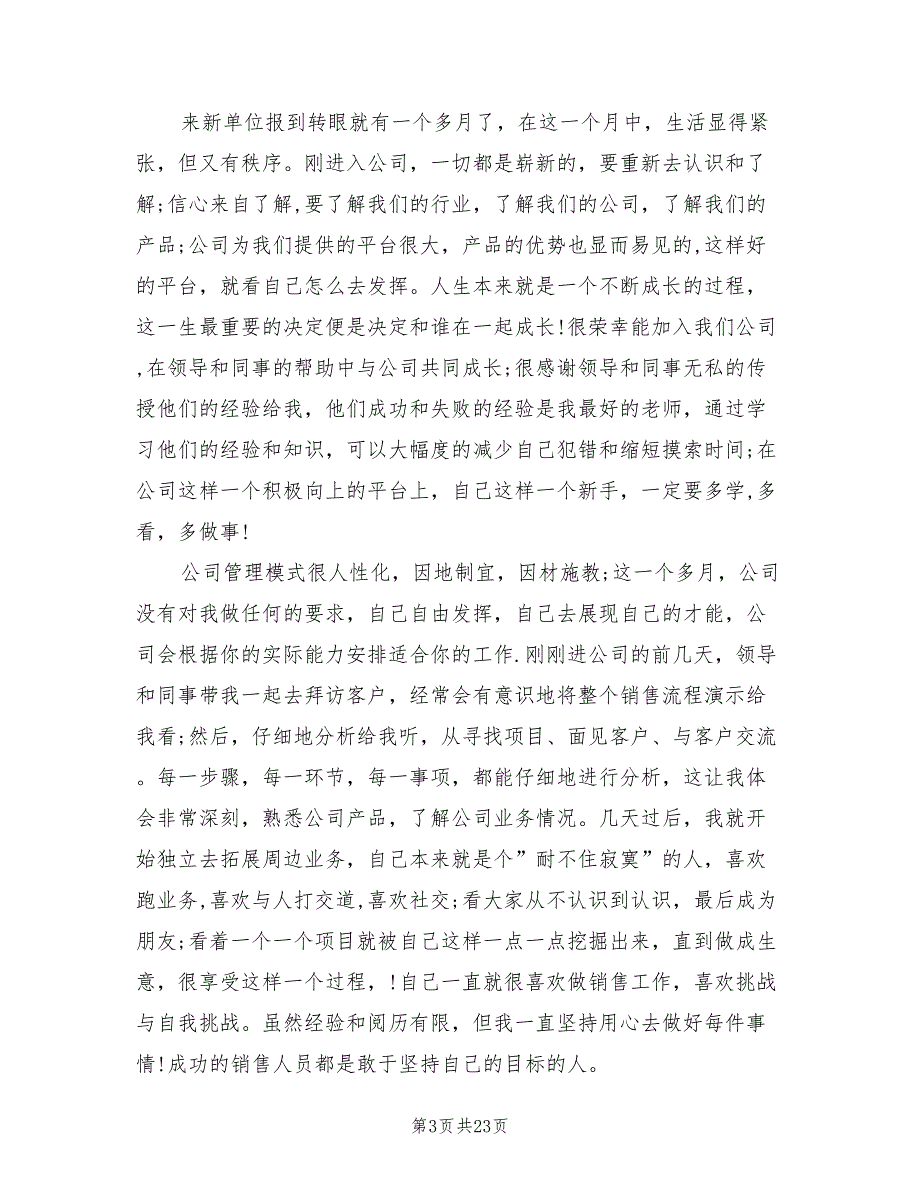 来新单位报到转眼就有一个多月了，在这一个月中，生活显得紧
张，但又有秩序。刚进入公司，一切都是崭新的，要重新去认识和了
解;信心来自了解,要了解我们的行业，了解我们的公司，了解我们的
产品;公司为我们提供的平台很大，产品的优势也显而易见的,这样好
的平台，就看自己怎么去发挥。人生本来就是一个不断成长的过程，
这一生最重要的决定便是决定和谁在一起成长!很荣幸能加入我们公司
,在领导和同事的帮助中与公司共同成长;很感谢领导和同事无私的传
授他们的经验给我，他们成功和失败的经验是我最好的老师，通过学
习他们的经验和知识，可以大幅度的减少自己犯错和缩短摸索时间;在
公司这样一个积极向上的平台上，自己这样一个新手，一定要多学,多
看，多做事!
公司管理模式很人性化，因地制宜，因材施教;这一个多月，公司
没有对我做任何的要求，自己自由发挥，自己去展现自己的才能，公
司会根据你的实际能力安排适合你的工作.刚刚进公司的前几天，领导
和同事带我一起去拜访客户，经常会有意识地将整个销售流程演示给
我看;然后，仔细地分析给我听，从寻找项目、面见客户、与客户交流
。每一步骤，每一环节，每一事项，都能仔细地进行分析，这让我体
会非常深刻，熟悉公司产品，了解公司业务情况。几天过后，我就开
始独立去拓展周边业务，自己本来就是个”耐不住寂寞”的人，喜欢
跑业务,喜欢与人打交道,喜欢社交;看大家从不认识到认识，最后成为
朋友;看着一个一个项目就被自己这样一点一点挖掘出来，直到做成生
意，很享受这样一个过程，!自己一直就很喜欢做销售工作，喜欢挑战
与自我挑战。虽然经验和阅历有限，但我一直坚持用心去做好每件事
情!成功的销售人员都是敢于坚持自己的目标的人。
第3页共23页